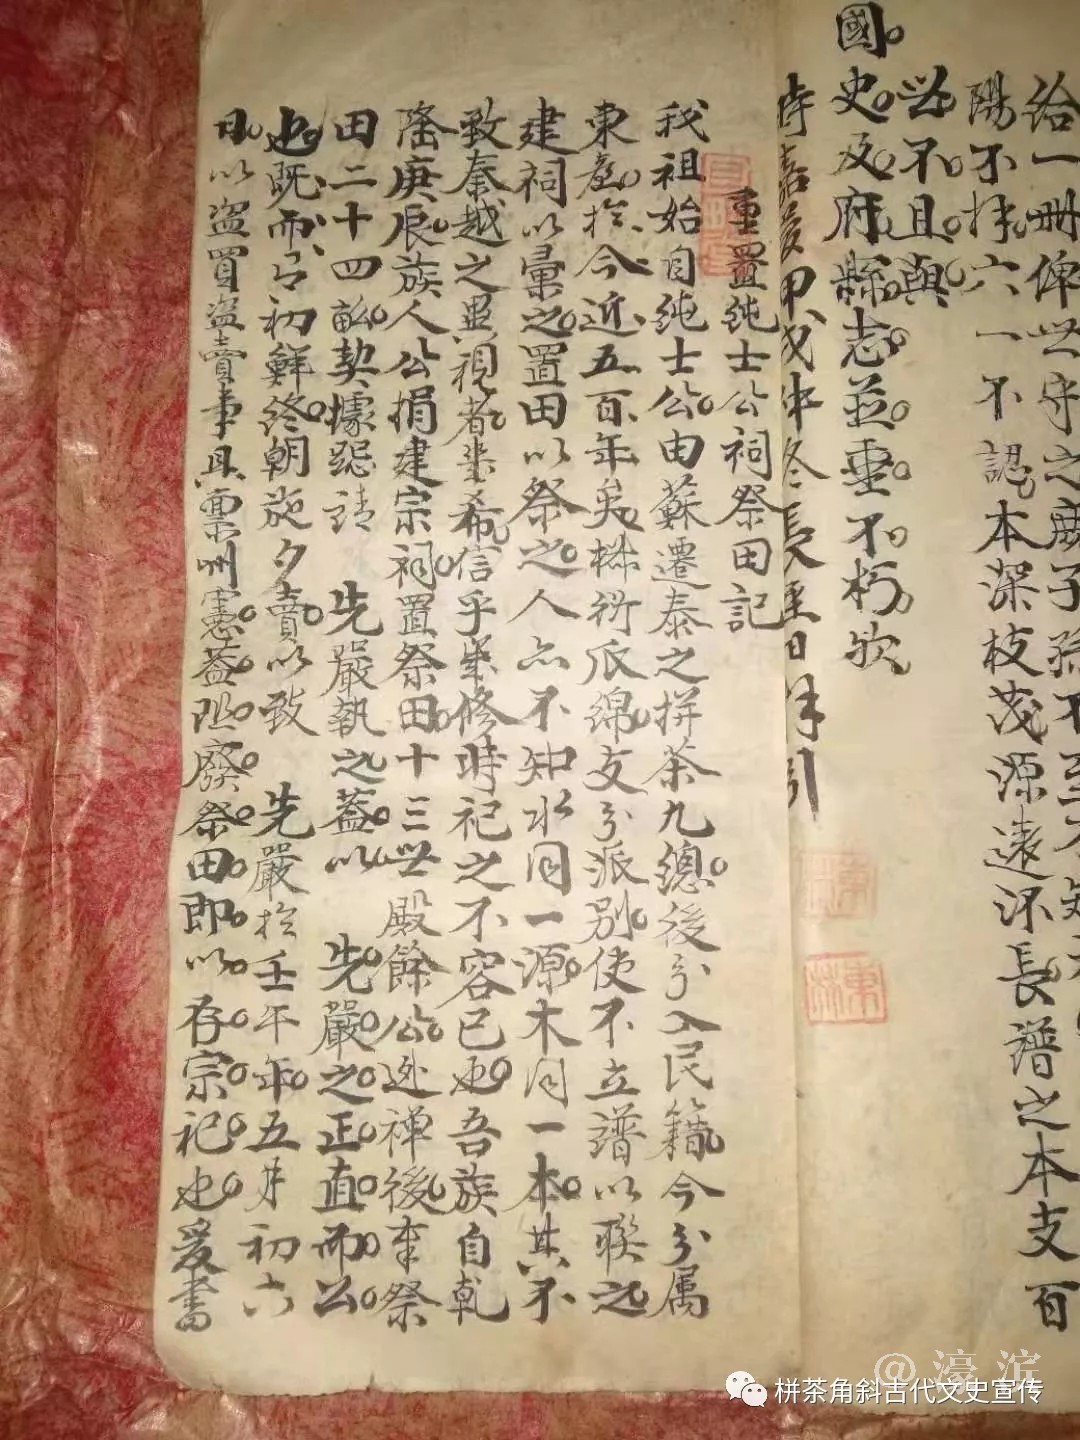 給一冊俾世守之庶子孫不至不知
陽不抃六一不認本深枝茂源遠流長譜之本支百
世不且與
國史及府縣志並垂不朽欤
時嘉慶甲戌仲冬長至日 引
重置純士公祠祭田記
我祖始自純士公由蘇遷泰之拼茶九總後分入民籍今分屬
東臺於今近五百年矣椒衍瓜綿支分派別使不立譜以聯之
建祠以彙之置田以祭之人亦不知水同一源木同一本其不
致秦越之異視者幾希信乎歲修時祀之不容已也吾族自乾
隆庚辰族人公捐建宗祠置祭田十三世殿餘公逃禪後奉祭
田二十四畝契據 請先嚴執之蓋以先嚴之正直而公
也既而 初鮮終朝施夕賣以致先嚴於壬午年五月初六
日以盜買盜賣事具稟州憲蓋阻廢祭田即以存宗祀也爰書
東
東林
栟茶角斜古代文史宣传
@濠滨